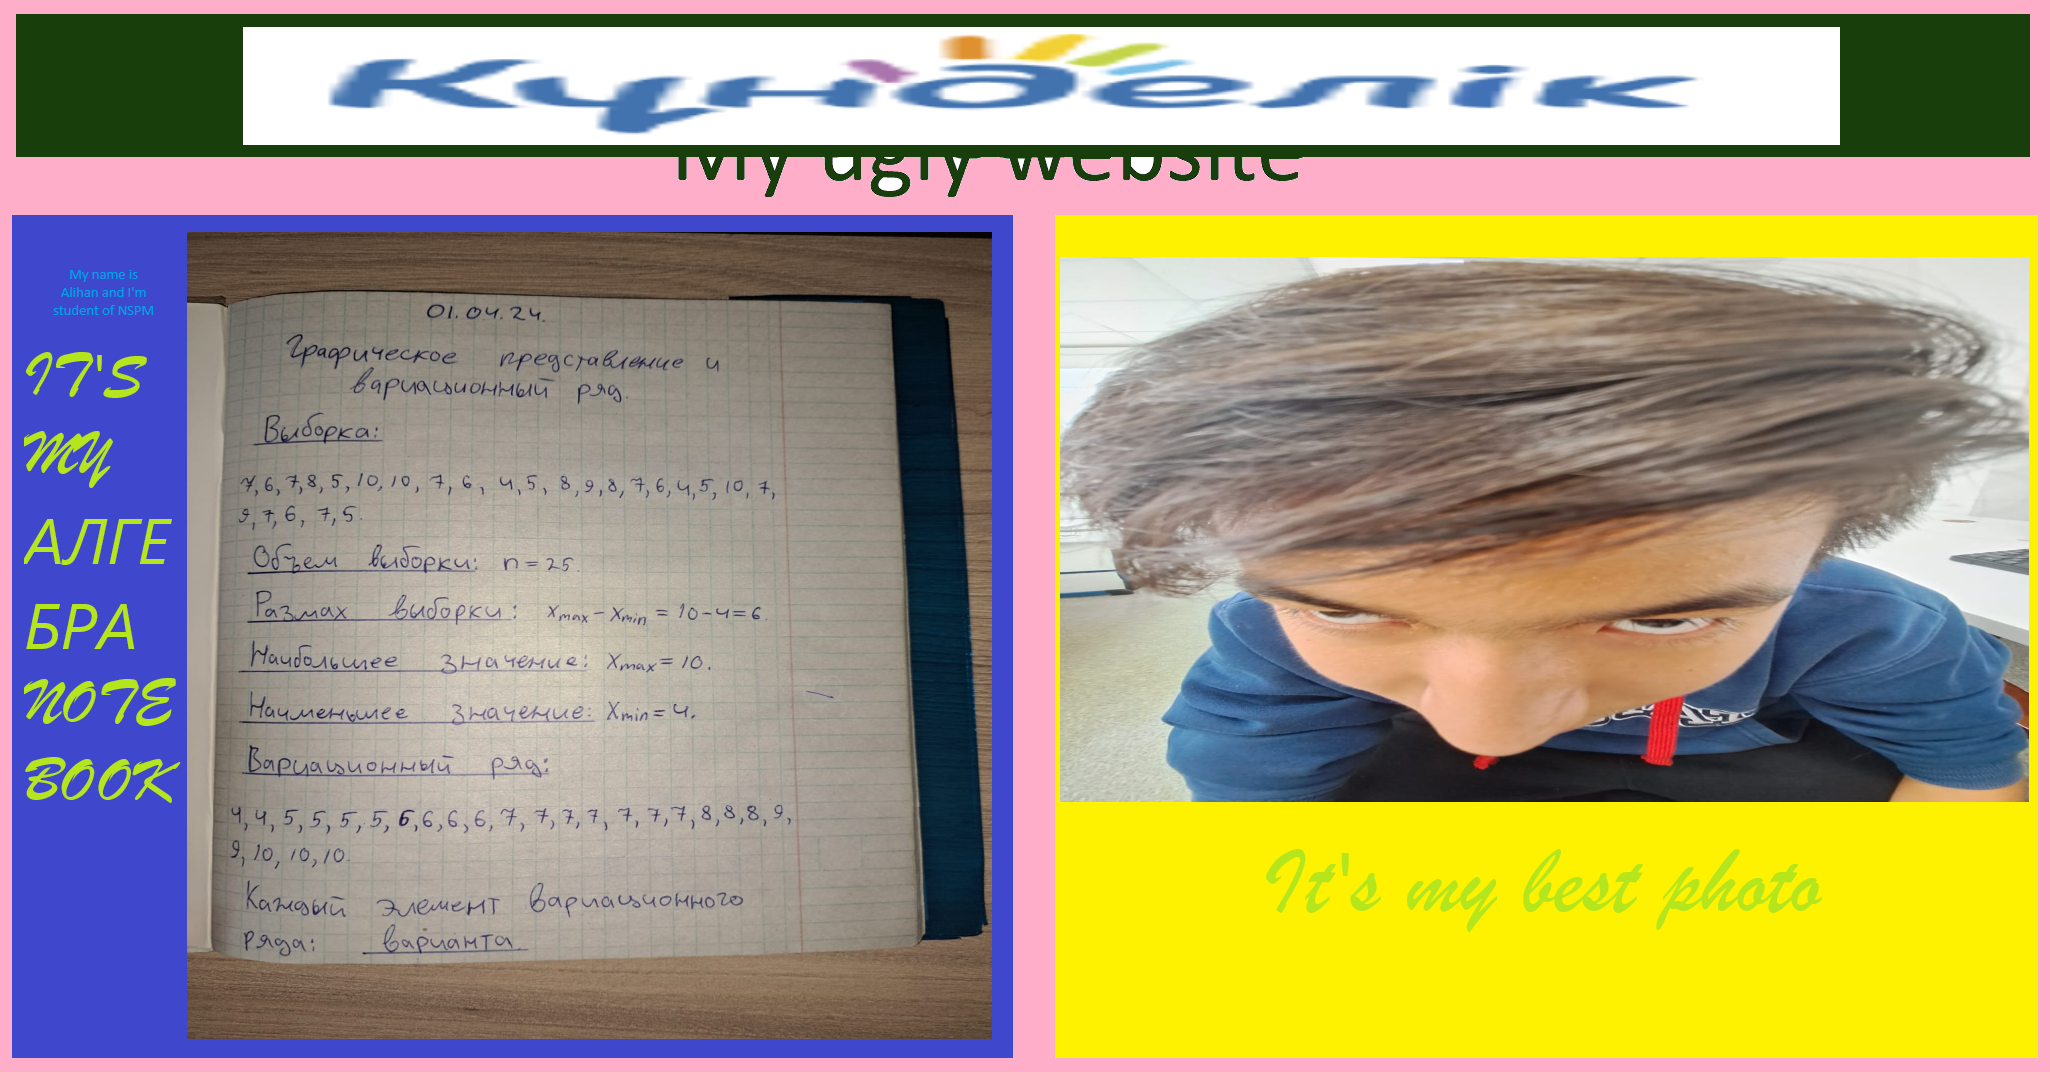 Күнделік
My ugly website
My name is
Alihan and I'm
student of NSPM
IT'S
MY
АЛГЕ
БРА
NOTE
BOOK
01.04.24.
Графическое представление и
вариационный ряд.
Выборка:
7, 6, 7, 8, 5, 10, 10, 7, 6, 4, 5, 8, 9, 8, 7, 6, 4, 5, 10, 7,
9, 7, 6, 7, 5.
Объем выборки: n = 25.
Размах выборки: xmax - xmin = 10-4=6.
Наибольшее значение: xmax = 10.
Наименьшее значение: xmin = 4.
Вариационный ряд:
4, 4, 5, 5, 5, 5, 6, 6, 6, 6, 7, 7, 7, 7, 7, 7, 7, 8, 8, 8, 9,
9, 10, 10, 10.
Каждый элемент вариационного
ряда: варианта
It's my best photo